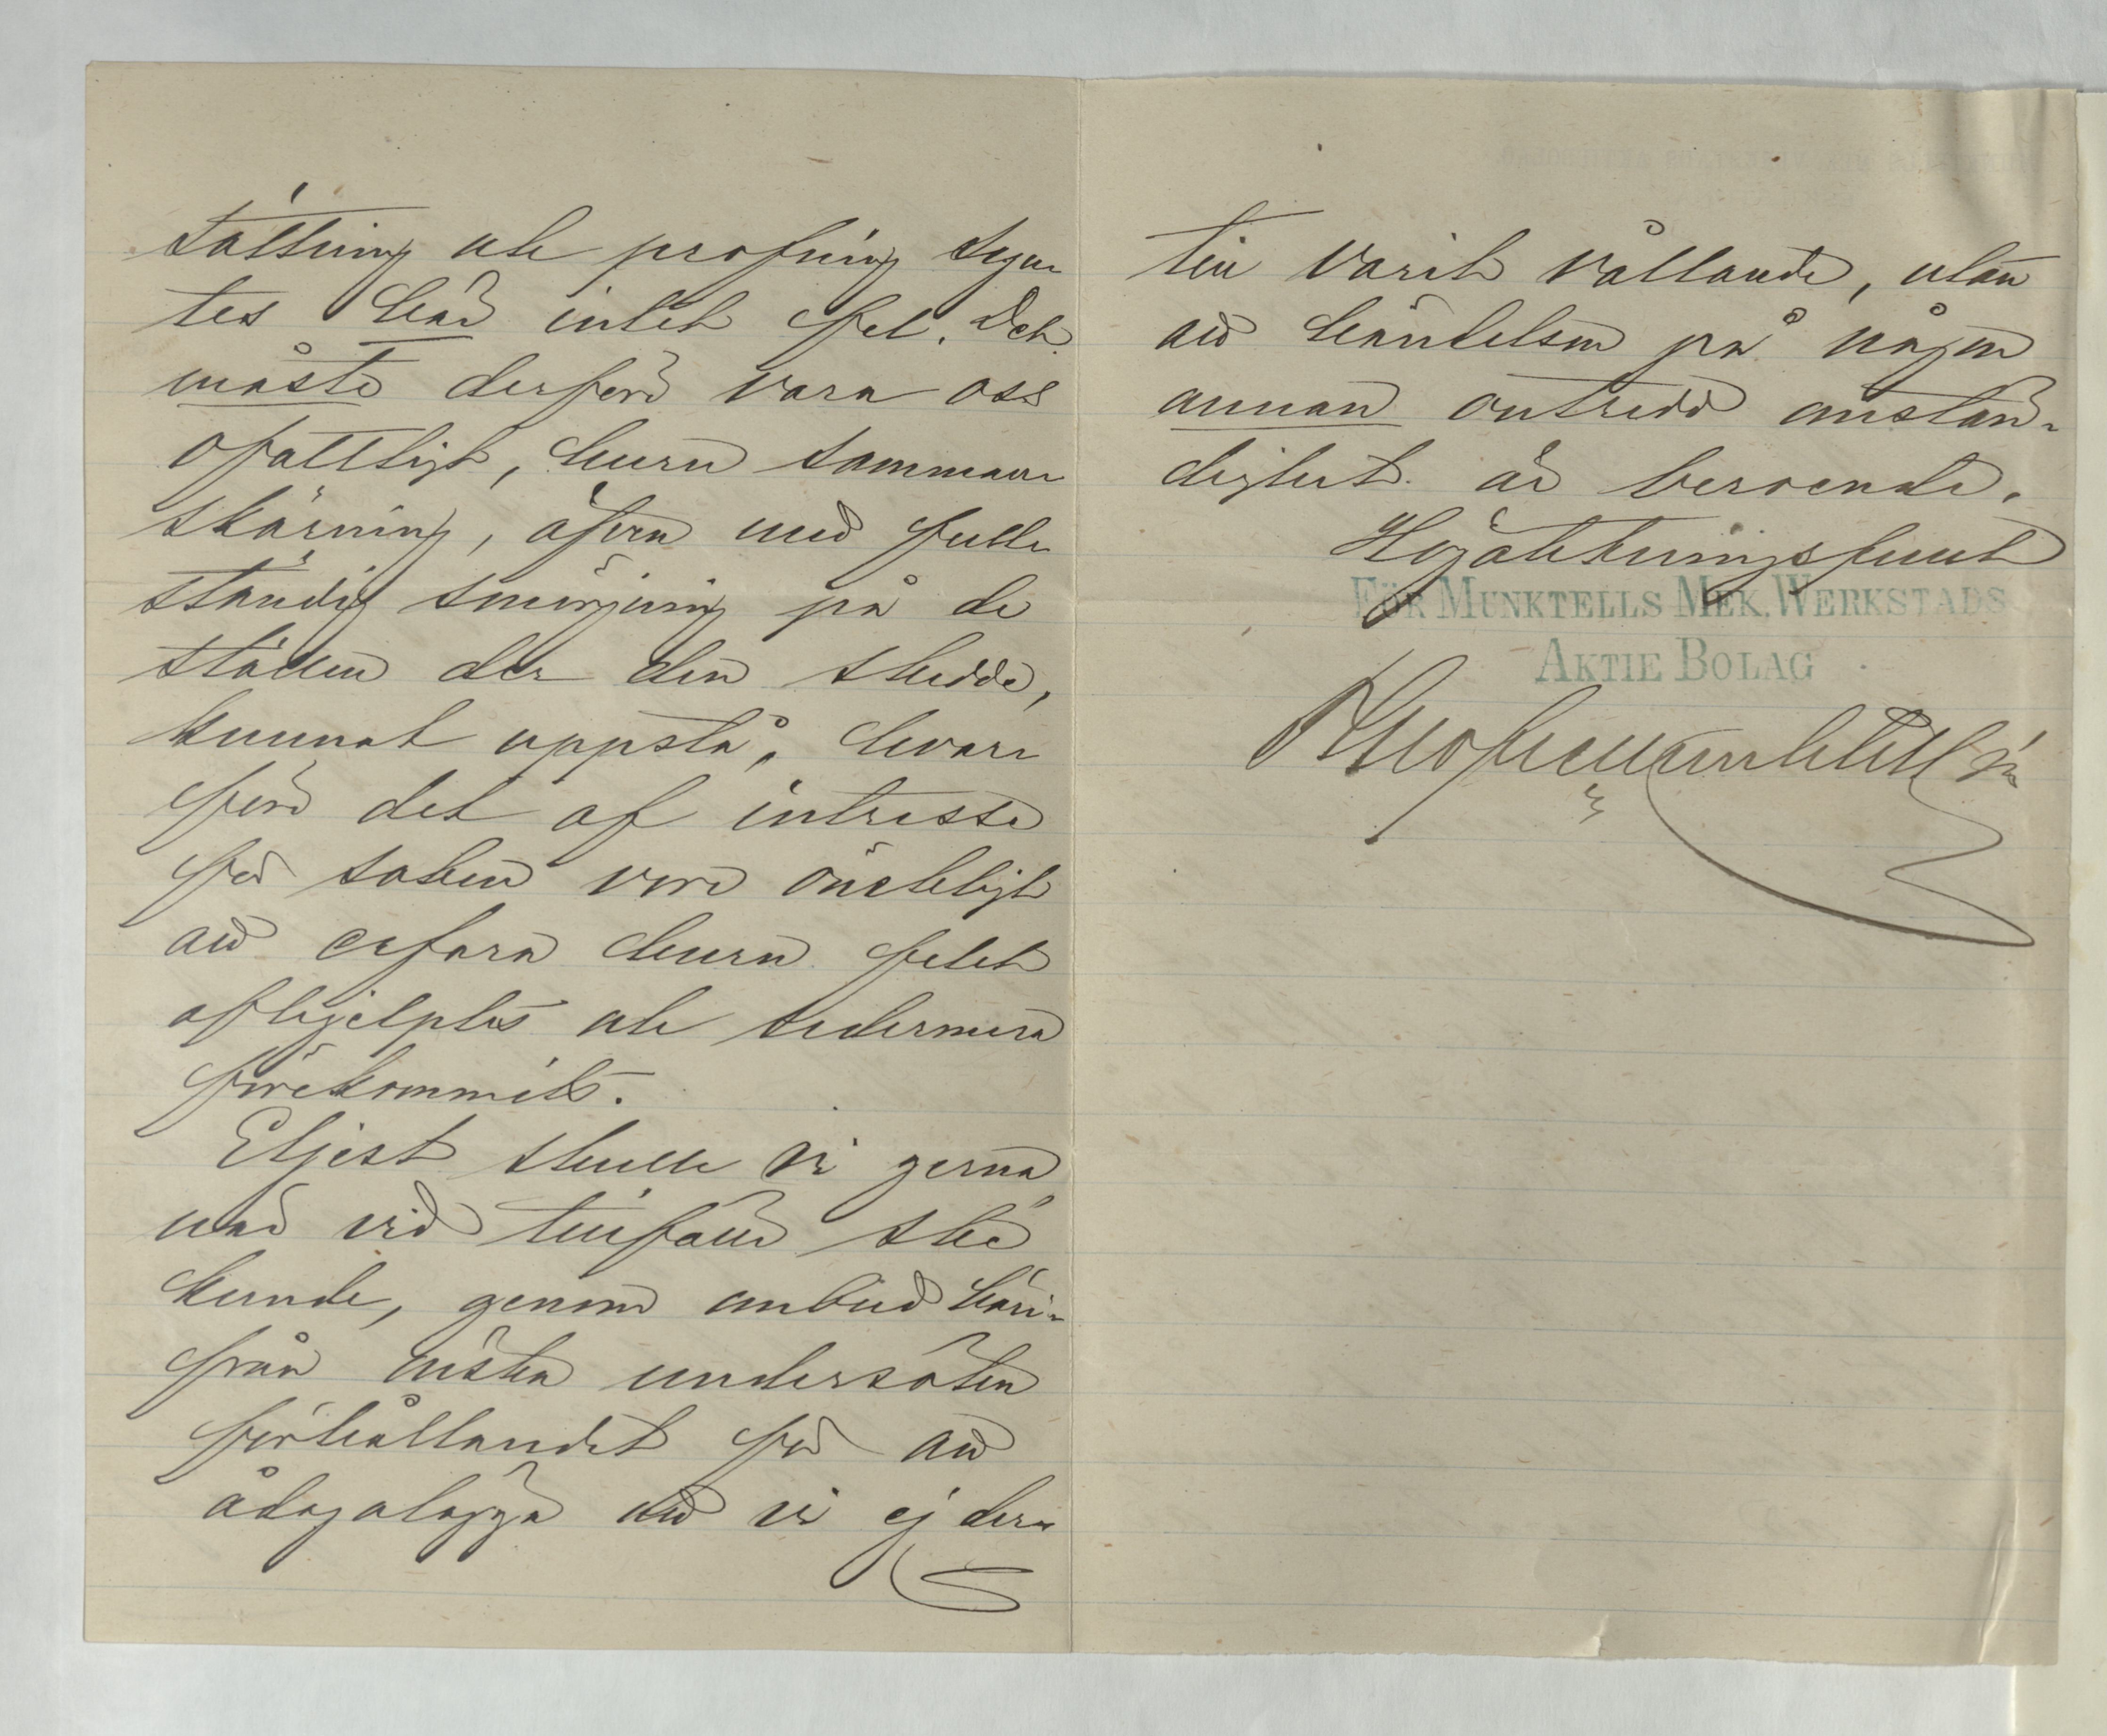 sättning och profning syn-
tes här intet fel. Det
måste derföre vara oss
ofattligt, huru samman-
skärning, äfven med full-
ständig smörjning på de
ställen der den skedde,
kunnat uppstå, hvar-
före det af intresse
för saken vore önskligt
att erfara huru felet
afhjelptes och sedermera
förekommits.
Eljest skulle vi gerna
när vid tillfälle ske
kunde, genom ombud häri-
från vilja undersöka
förhållandet för att
ådagalägga att vi ej der-
till varit vållande, utan
att händelsen på någon
annan outredd omstän-
dighet är beroende.
Högaktningsfullt
FÖR MUNKTELLS MEK. WERKSTADS
AKTIE BOLAG